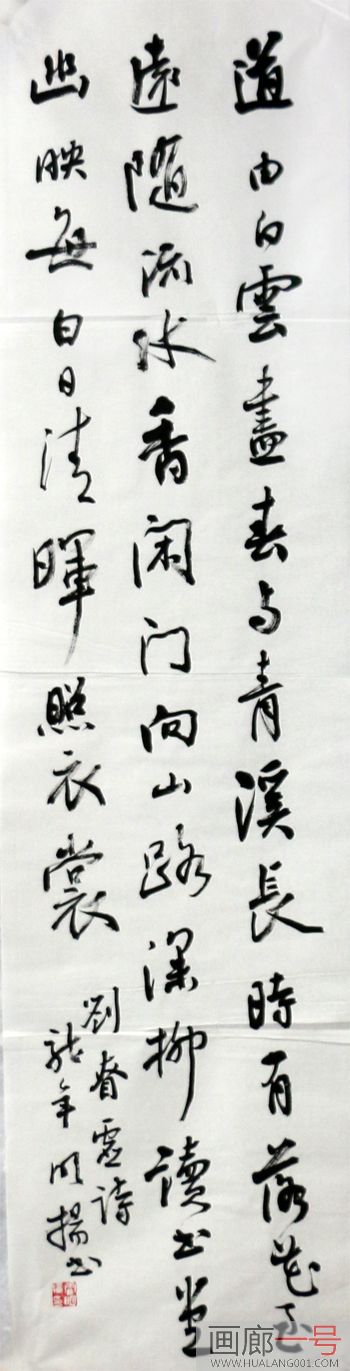 道由白雲盡春与青溪長時有落花至
遠隨流水香闲门向山路深柳讀书堂
幽映每白日清暉照衣裳
劉眘虛詩
龙年明揚书
画廊一号
WWW.HUALANG001.COM